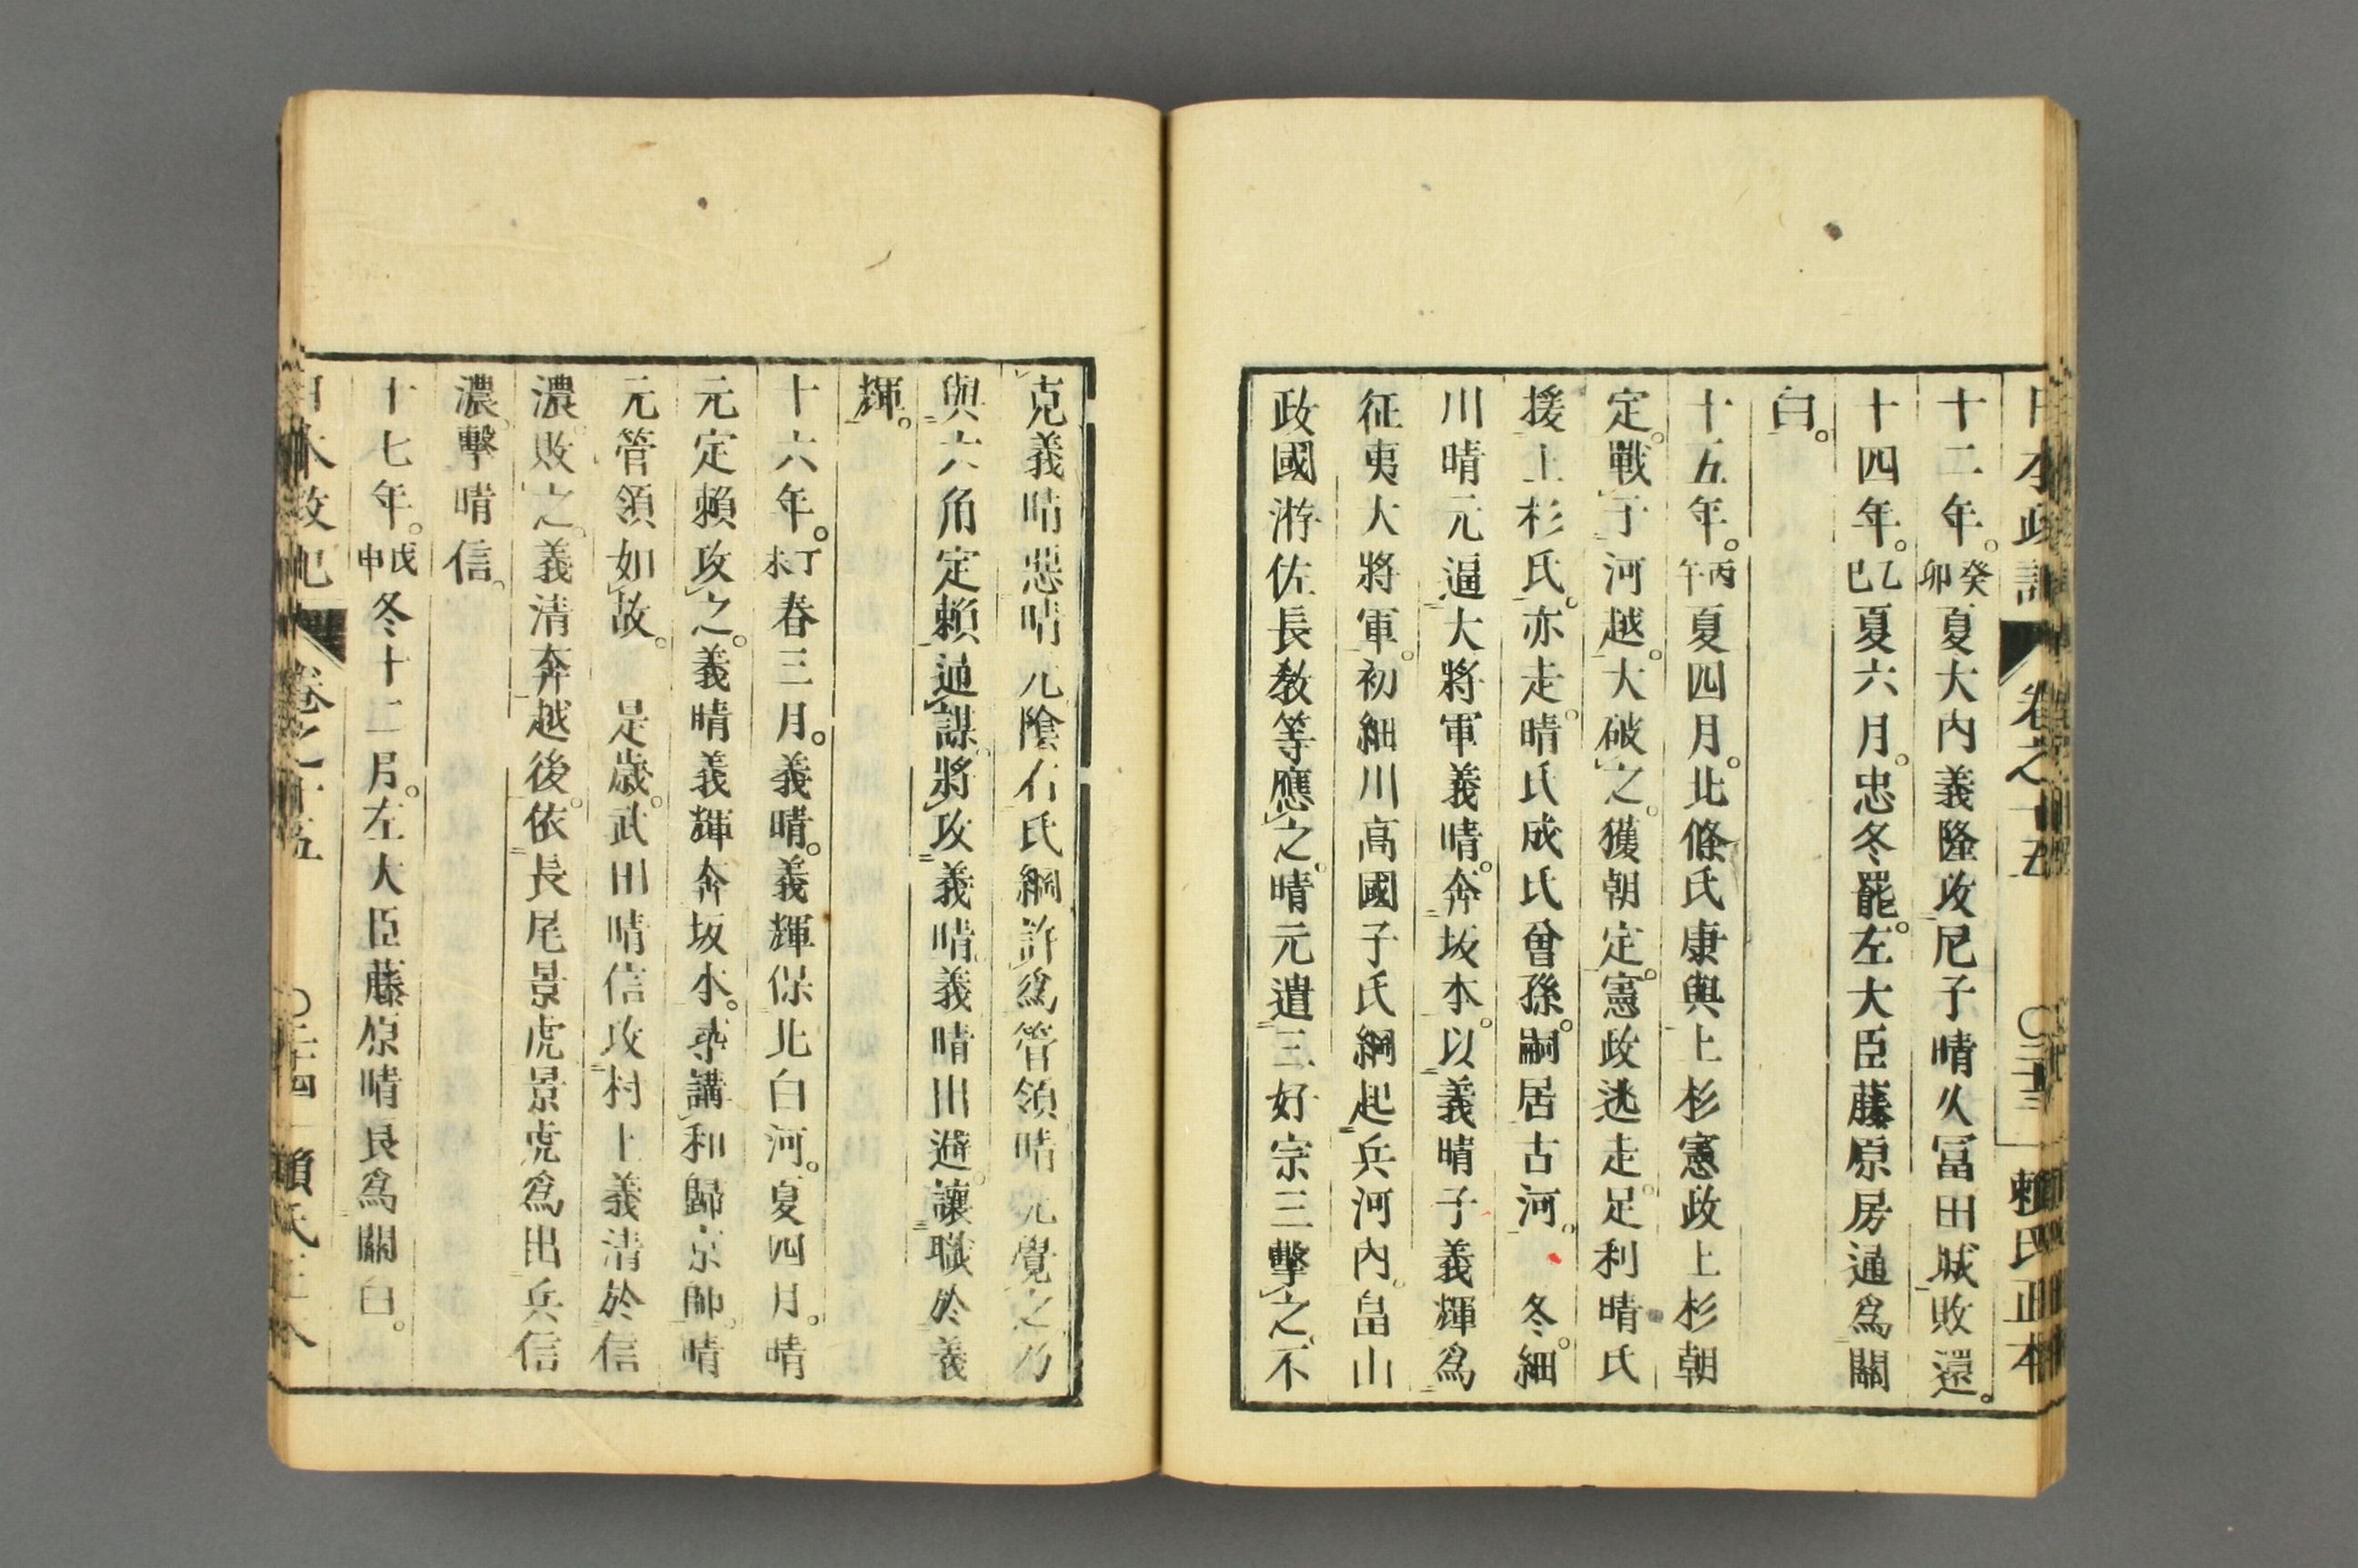 日本政記 卷之十五 〇三十三 賴氏正本
十二年。癸卯夏大内義隆攻尼子晴久冨田城敗還。
十四年。乙巳夏六月。忠冬罷。左大臣藤原房通爲關
白。
十五年。丙午夏四月。北條氏康與上杉憲政上杉朝
定。戰于河越。大破之。獲朝定。憲政逃走。足利晴氏
援上杉氏。亦走。晴氏成氏曾孫。嗣居古河。 冬。細
川晴元逼大將軍義晴。奔坂本。以義晴子義輝爲
征夷大將軍。初細川高國子氏綱起兵河内。畠山
政國游佐長敎等應之。晴元遣三好宗三擊之。不
克義晴惡晴元陰右氏綱許爲管領晴元覺之乃
與六角定賴通謀。將攻義晴。義晴出避。讓職於義
輝。
十六年。丁未春三月。義晴。義輝保北白河。夏四月。晴
元定賴攻之。義晴義輝奔坂本。尋講和歸京師。晴
元管領如故。 是歲。武田晴信攻村上義清於信
濃。敗之。義清奔越後。依長尾景虎景虎爲出兵信
濃。擊晴信。
十七年。戊申冬十二月。左大臣藤原晴良爲關白。
日本政記 卷之十五 〇三十四 賴氏正本